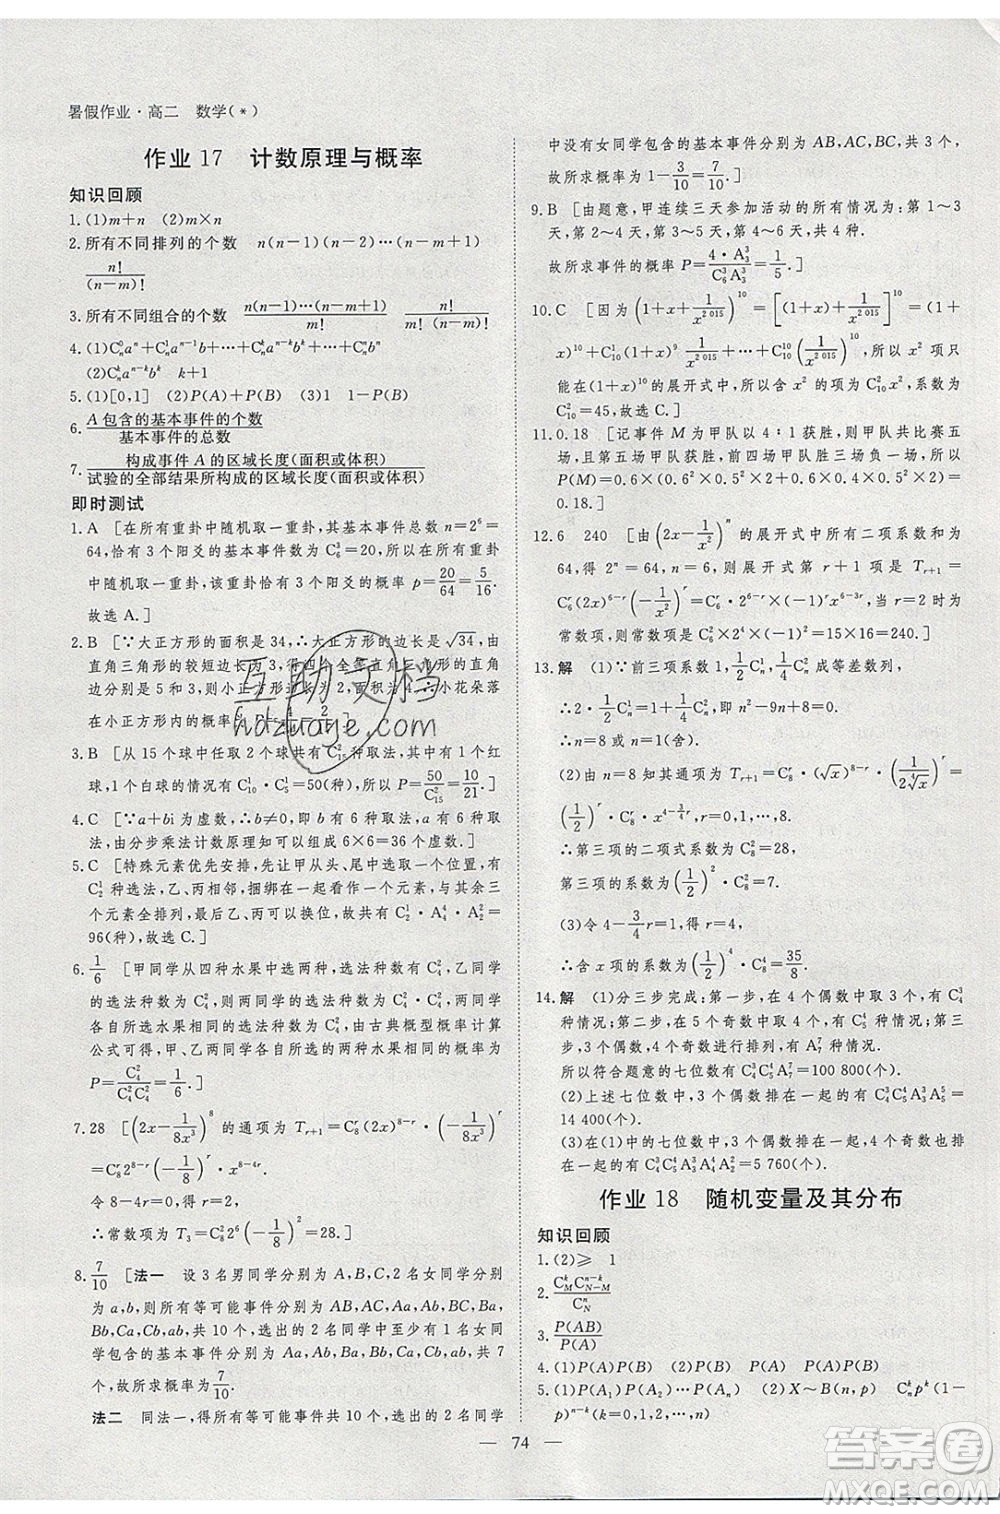 暑假作业·高二 数学(*)
作业 17 计数原理与概率
知识回顾
1.(1)m+n (2)m×n
2.所有不同排列的个数 n(n-1)(n-2)…(n-m+1)
n!/(n-m)!
3.所有不同组合的个数 n(n-1)(n-2)…(n-m+1)/m! n!/(m!(n-m)!)
4.(1)C_n^0a^n+C_n^1a^{n-1}b+…+C_n^ka^{n-k}b^k+…+C_n^nb^n
(2)C_n^ka^{n-k}b^k k+1
5.(1)[0,1] (2)P(A)+P(B) (3)1 1-P(B)
6.A包含的基本事件的个数/基本事件的总数
7.构成事件A的区域长度(面积或体积)/试验的全部结果所构成的区域长度(面积或体积)
即时测试
1.A [在所有重卦中随机取一重卦,其基本事件总数 n=2^6=
64,恰有 3 个阳爻的基本事件数为 C_6^3=20,所以在所有重卦
中随机取一重卦,该重卦恰有 3 个阳爻的概率 p=20/64=5/16.
故选 A.]
2.B [∵大正方形的面积是 34,∴大正方形的边长是√34,由
直角三角形的较短边长为 3,得四个全等直角三角形的直角
边分别是 5 和 3,则小正方形边长为 2,面积为 4,∴小花朵落
在小正方形内的概率
3.B [从 15 个球中任取 2 个球共有 C_15^2 种取法,其中有 1 个红
球,1 个白球的情况有 C_10^1·C_5^1=50(种),所以 P=50/C_15^2=10/21.]
4.C [∵a+bi 为虚数,∴b≠0,即 b 有 6 种取法,a 有 6 种取
法,由分步乘法计数原理知可以组成 6×6=36 个虚数.]
5.C [特殊元素优先安排,先让甲从头、尾中选取一个位置,有
C_2^1 种选法,乙、丙相邻,捆绑在一起看作一个元素,与其余三
个元素全排列,最后乙、丙可以换位,故共有 C_2^1·A_4^4·A_2^2=
96(种),故选 C.]
6.1/6 [甲同学从四种水果中选两种,选法种数为 C_4^2,乙同学
的选法种数为 C_4^2,则两同学的选法种数为 C_4^2·C_4^2,两同学
各自所选水果相同的选法种数为 C_4^2,由古典概型概率计算
公式可得,甲、乙两同学各自所选的两种水果相同的概率为
P=C_4^2/(C_4^2C_4^2)=1/6.]
7.28 [(2x-1/(8x^3))^8 的通项为 T_{r+1}=C_8^r(2x)^{8-r}(-1/(8x^3))^r
=C_8^r2^{8-r}(-1/8)^r x^{8-4r}.
令 8-4r=0,得 r=2,
∴常数项为 T_3=C_8^2 2^6(-1/8)^2=28.]
8.7/10 [法一 设 3 名男同学分别为 A,B,C,2 名女同学分别为
a,b,则所有等可能事件分别为 AB,AC,Aa,Ab,BC,Ba,
Bb,Ca,Cb,ab,共 10 个,选出的 2 名同学中至少有 1 名女同学
包含的基本事件分别为 Aa,Ab,Ba,Bb,Ca,Cb,ab,共 7
个,故所求概率为 7/10.
法二 同法一,得所有等可能事件共 10 个,选出的 2 名同学
中没有女同学包含的基本事件分别为 AB,AC,BC,共 3 个,
故所求概率为 1-3/10=7/10.]
9.B [由题意,甲连续三天参加活动的所有情况为:第 1~3
天,第 2~4 天,第 3~5 天,第 4~6 天,共 4 种.
故所求事件的概率 P=4·A_3^3/(C_6^3A_3^3)=1/5.]
10.C [因为(1+x+1/x^{2 015})^10=[(1+x)+1/x^{2 015}]^10=(1+
x)^10+C_10^1(1+x)^9·1/x^{2 015}+…+C_10^10(1/x^{2 015})^10,所以 x^2 项只
能在(1+x)^10 的展开式中,所以含 x^2 的项为 C_10^2x^2,系数为
C_10^2=45,故选 C.]
11.0.18 [记事件 M 为甲队以 4∶1 获胜,则甲队共比赛五
场,且第五场甲队获胜,前四场甲队胜三场负一场,所以
P(M)=0.6×(0.6^2×0.5^2×2+0.6×0.4×0.5^2×2)=
0.18.]
12.6 240 [由(2x-1/x^2)^n 的展开式中所有二项系数和为
64,得 2^n=64,n=6;展开式中第 r+1 项 T_{r+1}=
C_6^r(2x)^{6-r}(-1/x^2)^r=C_6^r·2^{6-r}·(-1)^r x^{6-3r},故当 r=2 时为
常数项,即常数项为 C_6^2×2^4×(-1)^2=15×16=240.]
13.解 (1)∵前三项系数 1,1/2C_n^1,1/4C_n^2 成等差数列,
∴2·1/2C_n^1=1+1/4C_n^2,即 n^2-9n+8=0.
∴n=8 或 n=1(舍).
(2)由 n=8 知其通项为 T_{r+1}=C_8^r·(√x)^{8-r}·(1/(2∜x))^r
=(1/2)^r·C_8^r·x^{4-3/4r},r=0,1,…,8.
∴第三项的二项式系数为 C_8^2=28.
第三项的系数为(1/2)^2·C_8^2=7.
(3)令 4-3/4r=1,得 r=4,
∴含 x 项的系数为(1/2)^4·C_8^4=35/8.
14.解 (1)分三步完成:第一步,在 4 个偶数中取 3 个,有 C_4^3
种情况;第二步,在 5 个奇数中取 4 个,有 C_5^4 种情况;第三
步,3 个偶数,4 个奇数进行排列,有 A_7^7 种情况.
所以符合题意的七位数有 C_4^3C_5^4A_7^7=100 800(个).
(2)上述七位数中,3 个偶数排在一起的有 C_4^3C_5^4A_5^5A_3^3=
14 400(个).
(3)在(1)中的七位数中,3 个偶数排在一起,4 个奇数也排
在一起的有 C_4^3C_5^4A_3^3A_4^4A_2^2=5 760(个).
作业 18 随机变量及其分布
知识回顾
1.(2)≥ 1
2.C_M^kC_{N-M}^{n-k}/C_N^n
3.P(AB)/P(A)
4.(1)P(A)P(B) (2)P(B) P(A)P(B)
5.(1)P(A_1)P(A_2)…P(A_n) (2)X~B(n,p) C_n^kp^k(1-
p)^{n-k}(k=0,1,2,…,n)
— 74 —
互助文档
hdzuoye.com
答案卷
MXQE.COM